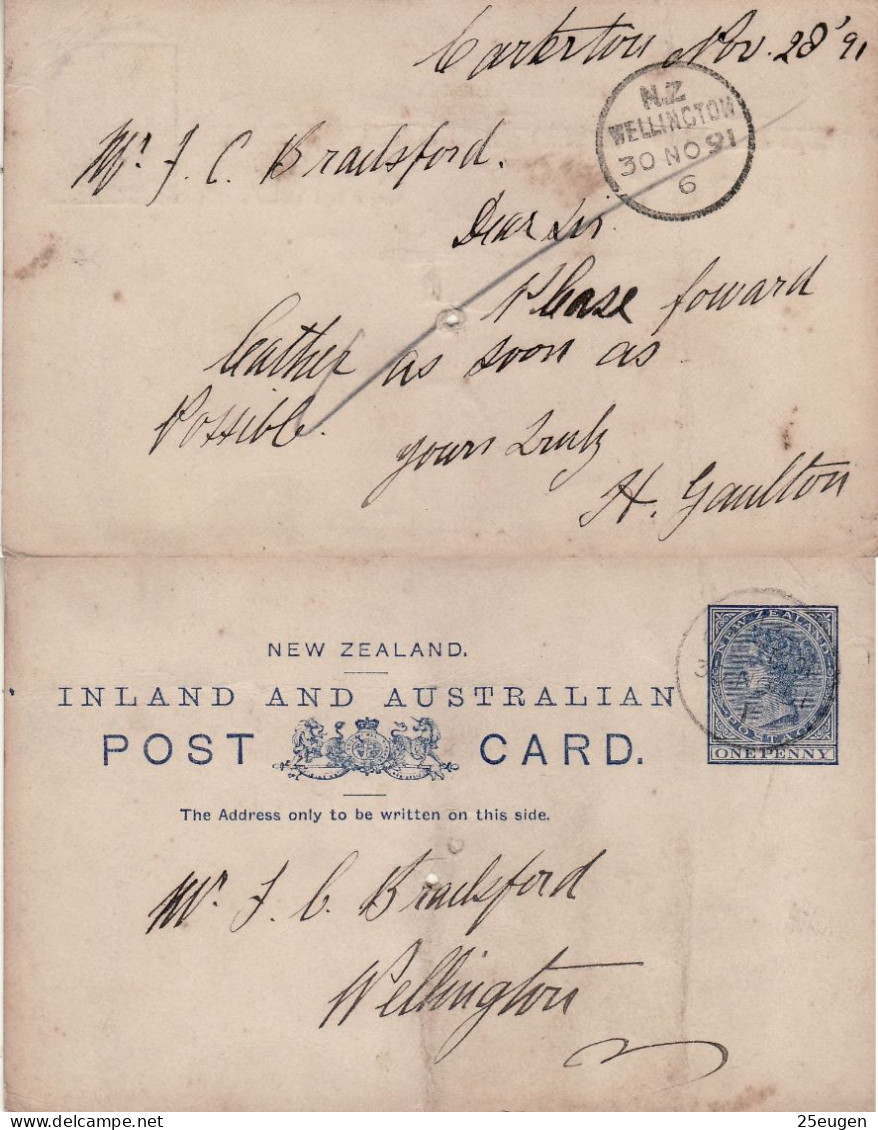 Carterton Nov. 28' 91
N.Z
WELLINGTON
30 NO 91
6
Mr. J. C. Brailsford.
Dear Sir
Please foward
leather as soon as
Possible.
yours Truly
H. Gaulton
NEW ZEALAND.
INLAND AND AUSTRALIAN
POST CARD.
The Address only to be written on this side.
NEW ZEALAND
POSTAGE
ONE PENNY
Mr. J. C. Brailsford
Wellington
25eugen